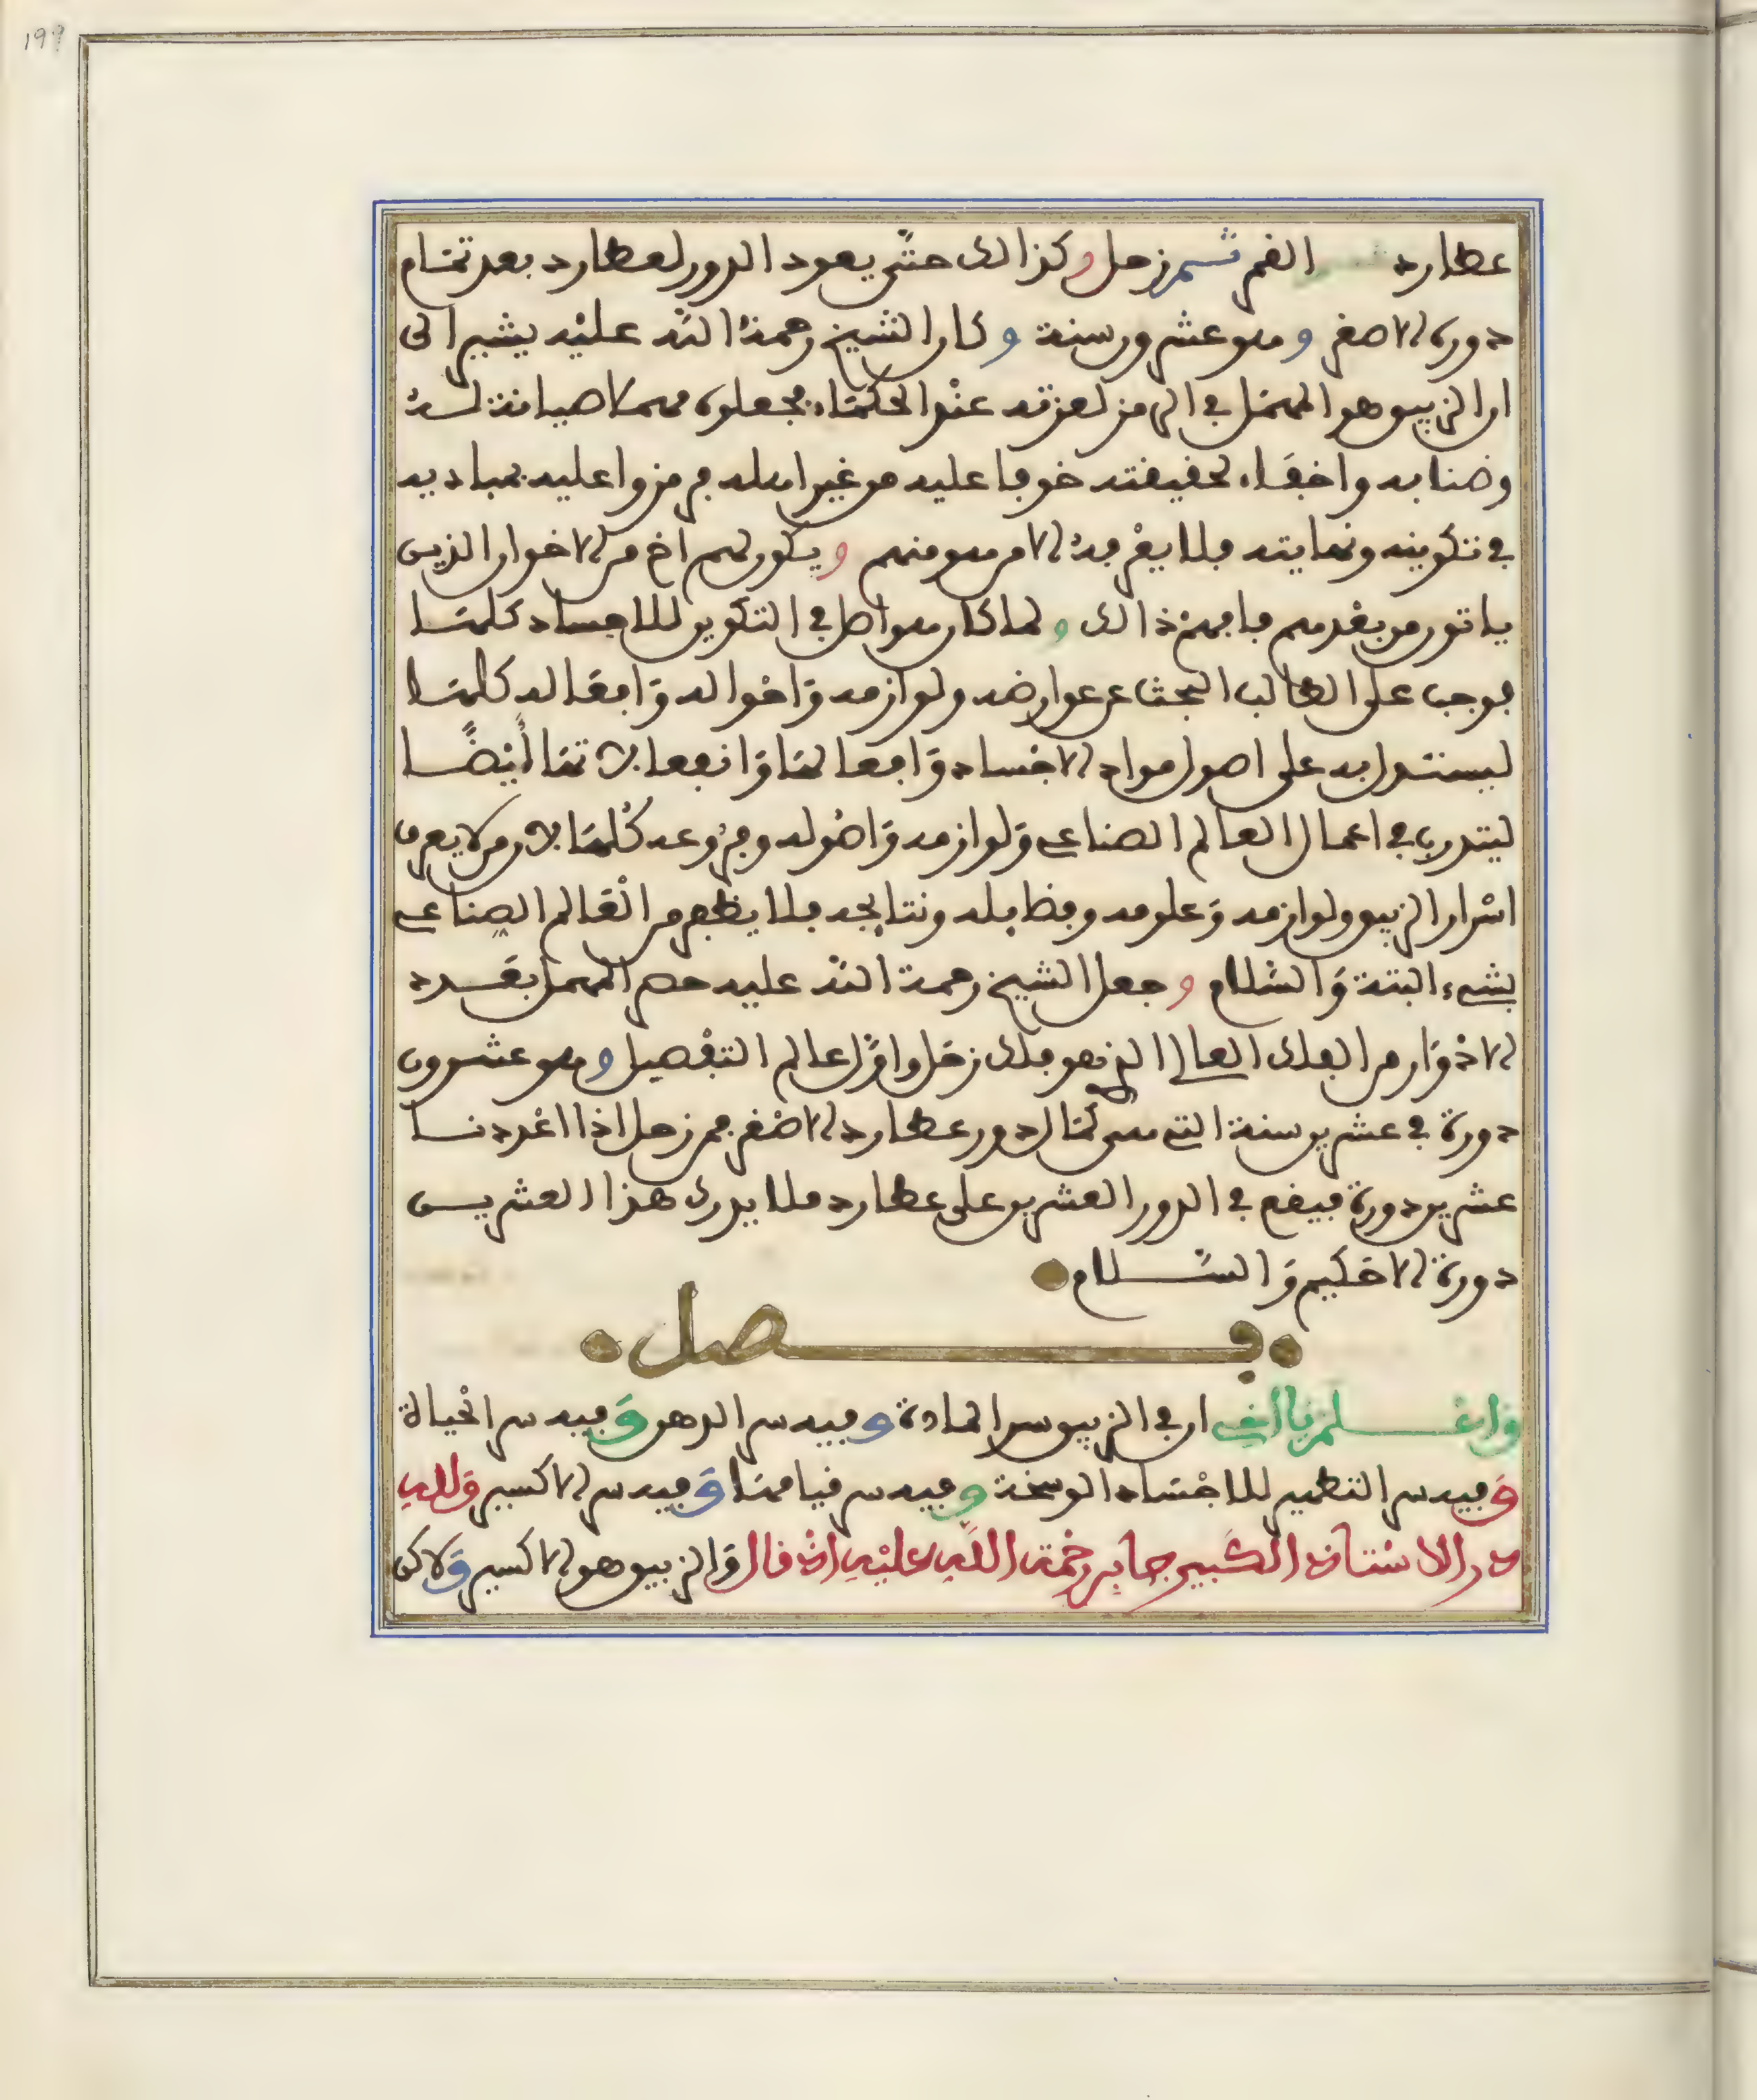 199
عطارد القمر ثم زحل وكذالك حتى يعود الدور لعطارد بعد تمام
دوره الاصغر وهو عشرون سنة وكان الشيخ رحمة الله عليه يشير الى
ان الزيبق هو المهمل في الرمز لعزته عند الحكماء فجعلوه مهملا صيانة له
وضنا به واخفاء لحقيقته خوفا عليه من غير اهله فرمزوا عليه بمباديه
في تكوينه ونهايته فلا يعرفه الا من هو منهم ويكون لهم اخ من الاخوان الذين
ياتون من بعدهم فافهم ذالك ولما كان هو اصل في التكوين للاجساد كلها
فوجب على الطالب البحث عن عوارضه ولوازمه واحواله وافعاله كلها
ليستدل به على اصول مواد الاجساد وافعالها وانفعالاتها ايضا
ليتدرب في اعمال العالم الصناعي ولوازمه واصوله وفروعه كلها لان من لا يعرف
اسرار الزيبق ولوازمه وعلومه وفضايله ونتايجه فلا يظهر من العالم الصناعي
بشيء البتة والسلام وجعل الشيخ رحمة الله عليه حصر المهمل بعدد
الادوار من الفلك العالي الذي هو فلك زحل واول عالم التفصيل وهو عشرون
دورة في عشرين سنة التي هي كمال دور عطارد الاصغر فمن زحل اذا اعددنا
عشرين دورة فيقع في الدور العشرين على عطارد فلا يدرك هذا العشرين
دورة الا حكيم والسلام
فصل
واعلم يا اخي ان في الزيبق سر المادة وفيه سر الدهن وفيه سر الحياة
وفيه سر التطهير للاجساد الوسخة وفيه سر قيامها وفيه سر الاكسير ولله
در الاستاذ الكبير جابر رحمة الله عليه اذ قال والزيبق هو الاكسير ولاكن